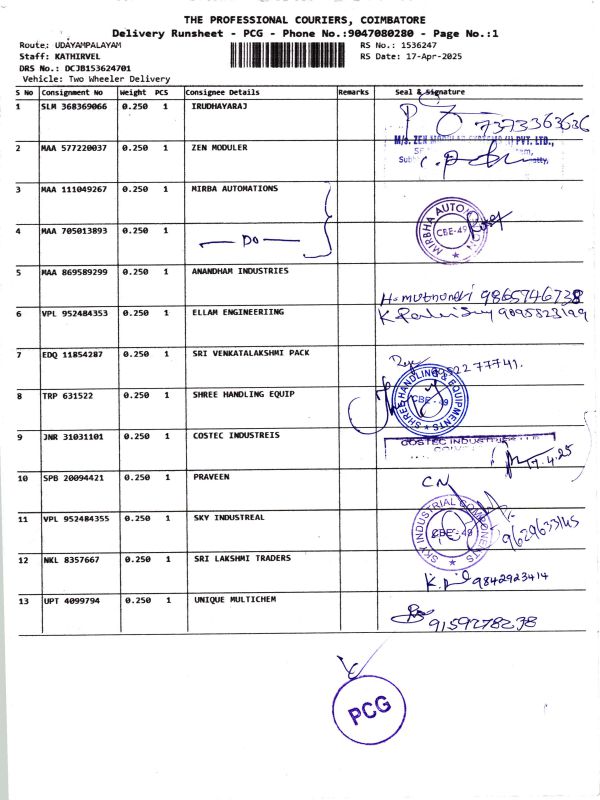 THE PROFESSIONAL COURIERS, COIMBATORE
Delivery Runsheet - PCG - Phone No.:9047080280 - Page No.:1
Route: UDAYAMPALAYAM RS No.: 1536247
Staff: KATHIRVEL RS Date: 17-Apr-2025
DRS No.: DCJB153624701
Vehicle: Two Wheeler Delivery
S No Consignment No Weight PCS Consignee Details Remarks Seal & Signature
1 SLM 368369066 0.250 1 IRUDHAYARAJ
7373363636
M/s. ZEN MODULAR SYSTEMS (I) PVT. LTD.,
2 MAA 577220037 0.250 1 ZEN MODULER
3 MAA 111049267 0.250 1 MIRBA AUTOMATIONS
MIRBHA AUTOMATION CBE-49
4 MAA 705013893 0.250 1 — DO —
5 MAA 869589299 0.250 1 ANANDHAM INDUSTRIES
9865746738
6 VPL 952484353 0.250 1 ELLAM ENGINEERIING
9095823199
7 EDQ 11854287 0.250 1 SRI VENKATALAKSHMI PACK
77741.
8 TRP 631522 0.250 1 SHREE HANDLING EQUIP
SHREE HANDLING & EQUIPMENTS CBE-49
9 JNR 31031101 0.250 1 COSTEC INDUSTREIS
COSTEC INDUSTRIES
17.4.25
10 SPB 20094421 0.250 1 PRAVEEN
CN
11 VPL 952484355 0.250 1 SKY INDUSTREAL
SKY INDUSTRIAL COMPONENTS CBE-49
9629633145
12 NKL 8357667 0.250 1 SRI LAKSHMI TRADERS
9842923414
13 UPT 4099794 0.250 1 UNIQUE MULTICHEM
9159278238
PCG